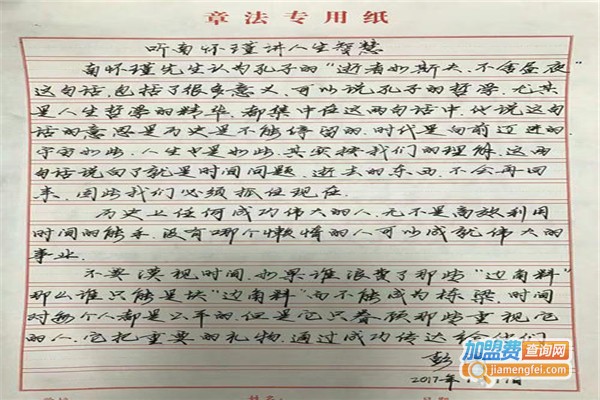 章法专用纸
听南怀瑾讲人生智慧
南怀瑾先生认为孔子的“逝者如斯夫，不舍昼夜”
这句话，包括了很多意义，可以说孔子的哲学，尤其
是人生哲学的精华，都集中在这两句话中，他说这句
话的意思是历史是不能停留的，时代是向前迈进的，
宇宙如此，人生也是如此，其实按我们的理解，这两
句话说白了就是时间问题，逝去的东西，不会再回
来，因此我们必须抓住现在。
历史上任何成功伟大的人，无不是高效利用
时间的能手，没有哪个懒惰的人可以成就伟大的
事业。
不要漠视时间，如果谁浪费了那些“边角料”
那么谁只能是块“边角料”而不能成为栋梁，时间
对每个人都是公平的，但是它只眷顾那些重视它
的人，它把重要的礼物，通过成功传达给他们
彭
2017年
加盟费查询网
jiamengfei.com